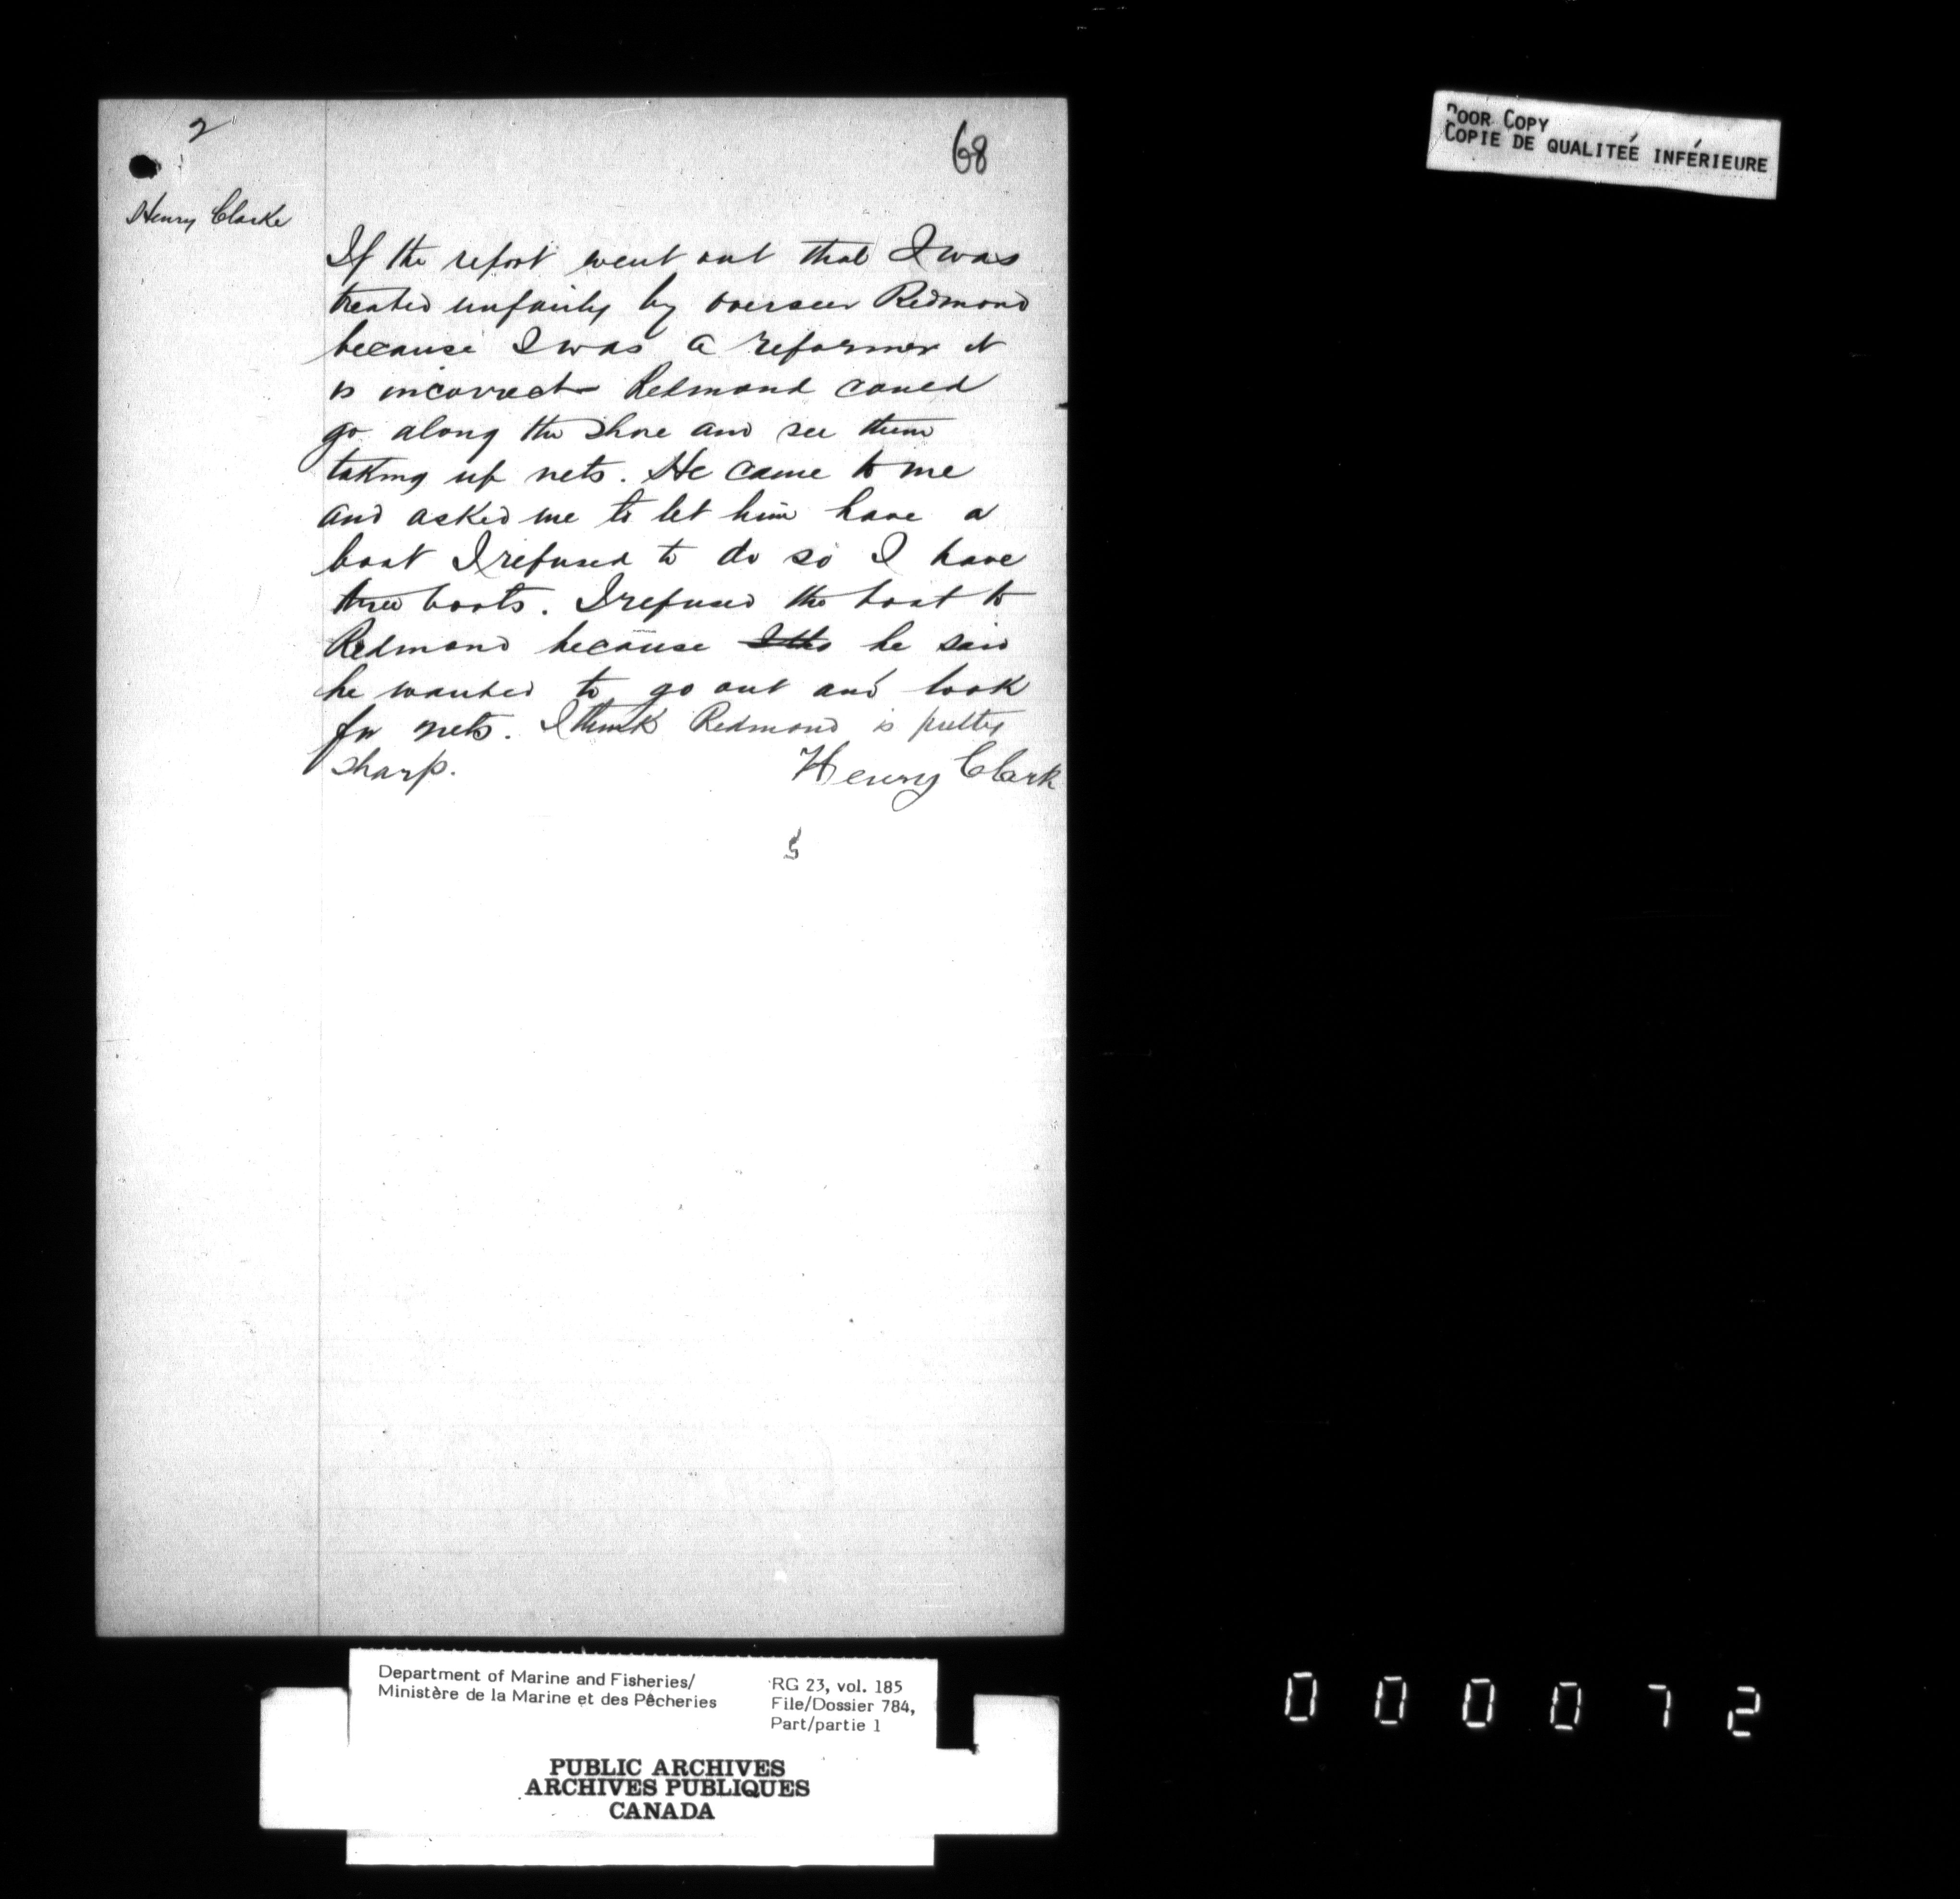 2
68
Henry Clarke
If the report went out that I was
treated unfairly by overseer Redmond
because I was a reformer it
is incorrect Redmond could
go along the shore and see them
taking up nets. He came to me
and asked me to let him have a
boat I refused to do so I have
three boats. I refused the boat to
Redmond because he said
he wanted to go out and look
for nets. I think Redmond is pretty
sharp.
Henry Clark
POOR COPY
COPIE DE QUALITEÉ INFÉRIEURE
Department of Marine and Fisheries/
Ministère de la Marine et des Pêcheries
RG 23, vol. 185
File/Dossier 784,
Part/partie 1
PUBLIC ARCHIVES
ARCHIVES PUBLIQUES
CANADA
000072